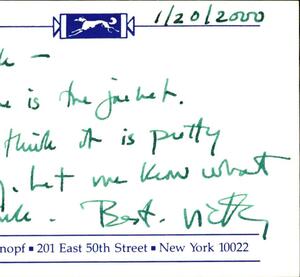 1/20/2000
is the jacket.
think it is pretty
. Let me know what
. Best. Vicky
nopf ▪ 201 East 50th Street ▪ New York 10022